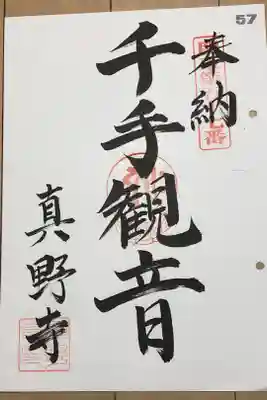 57
奉納
千手観音
真野寺